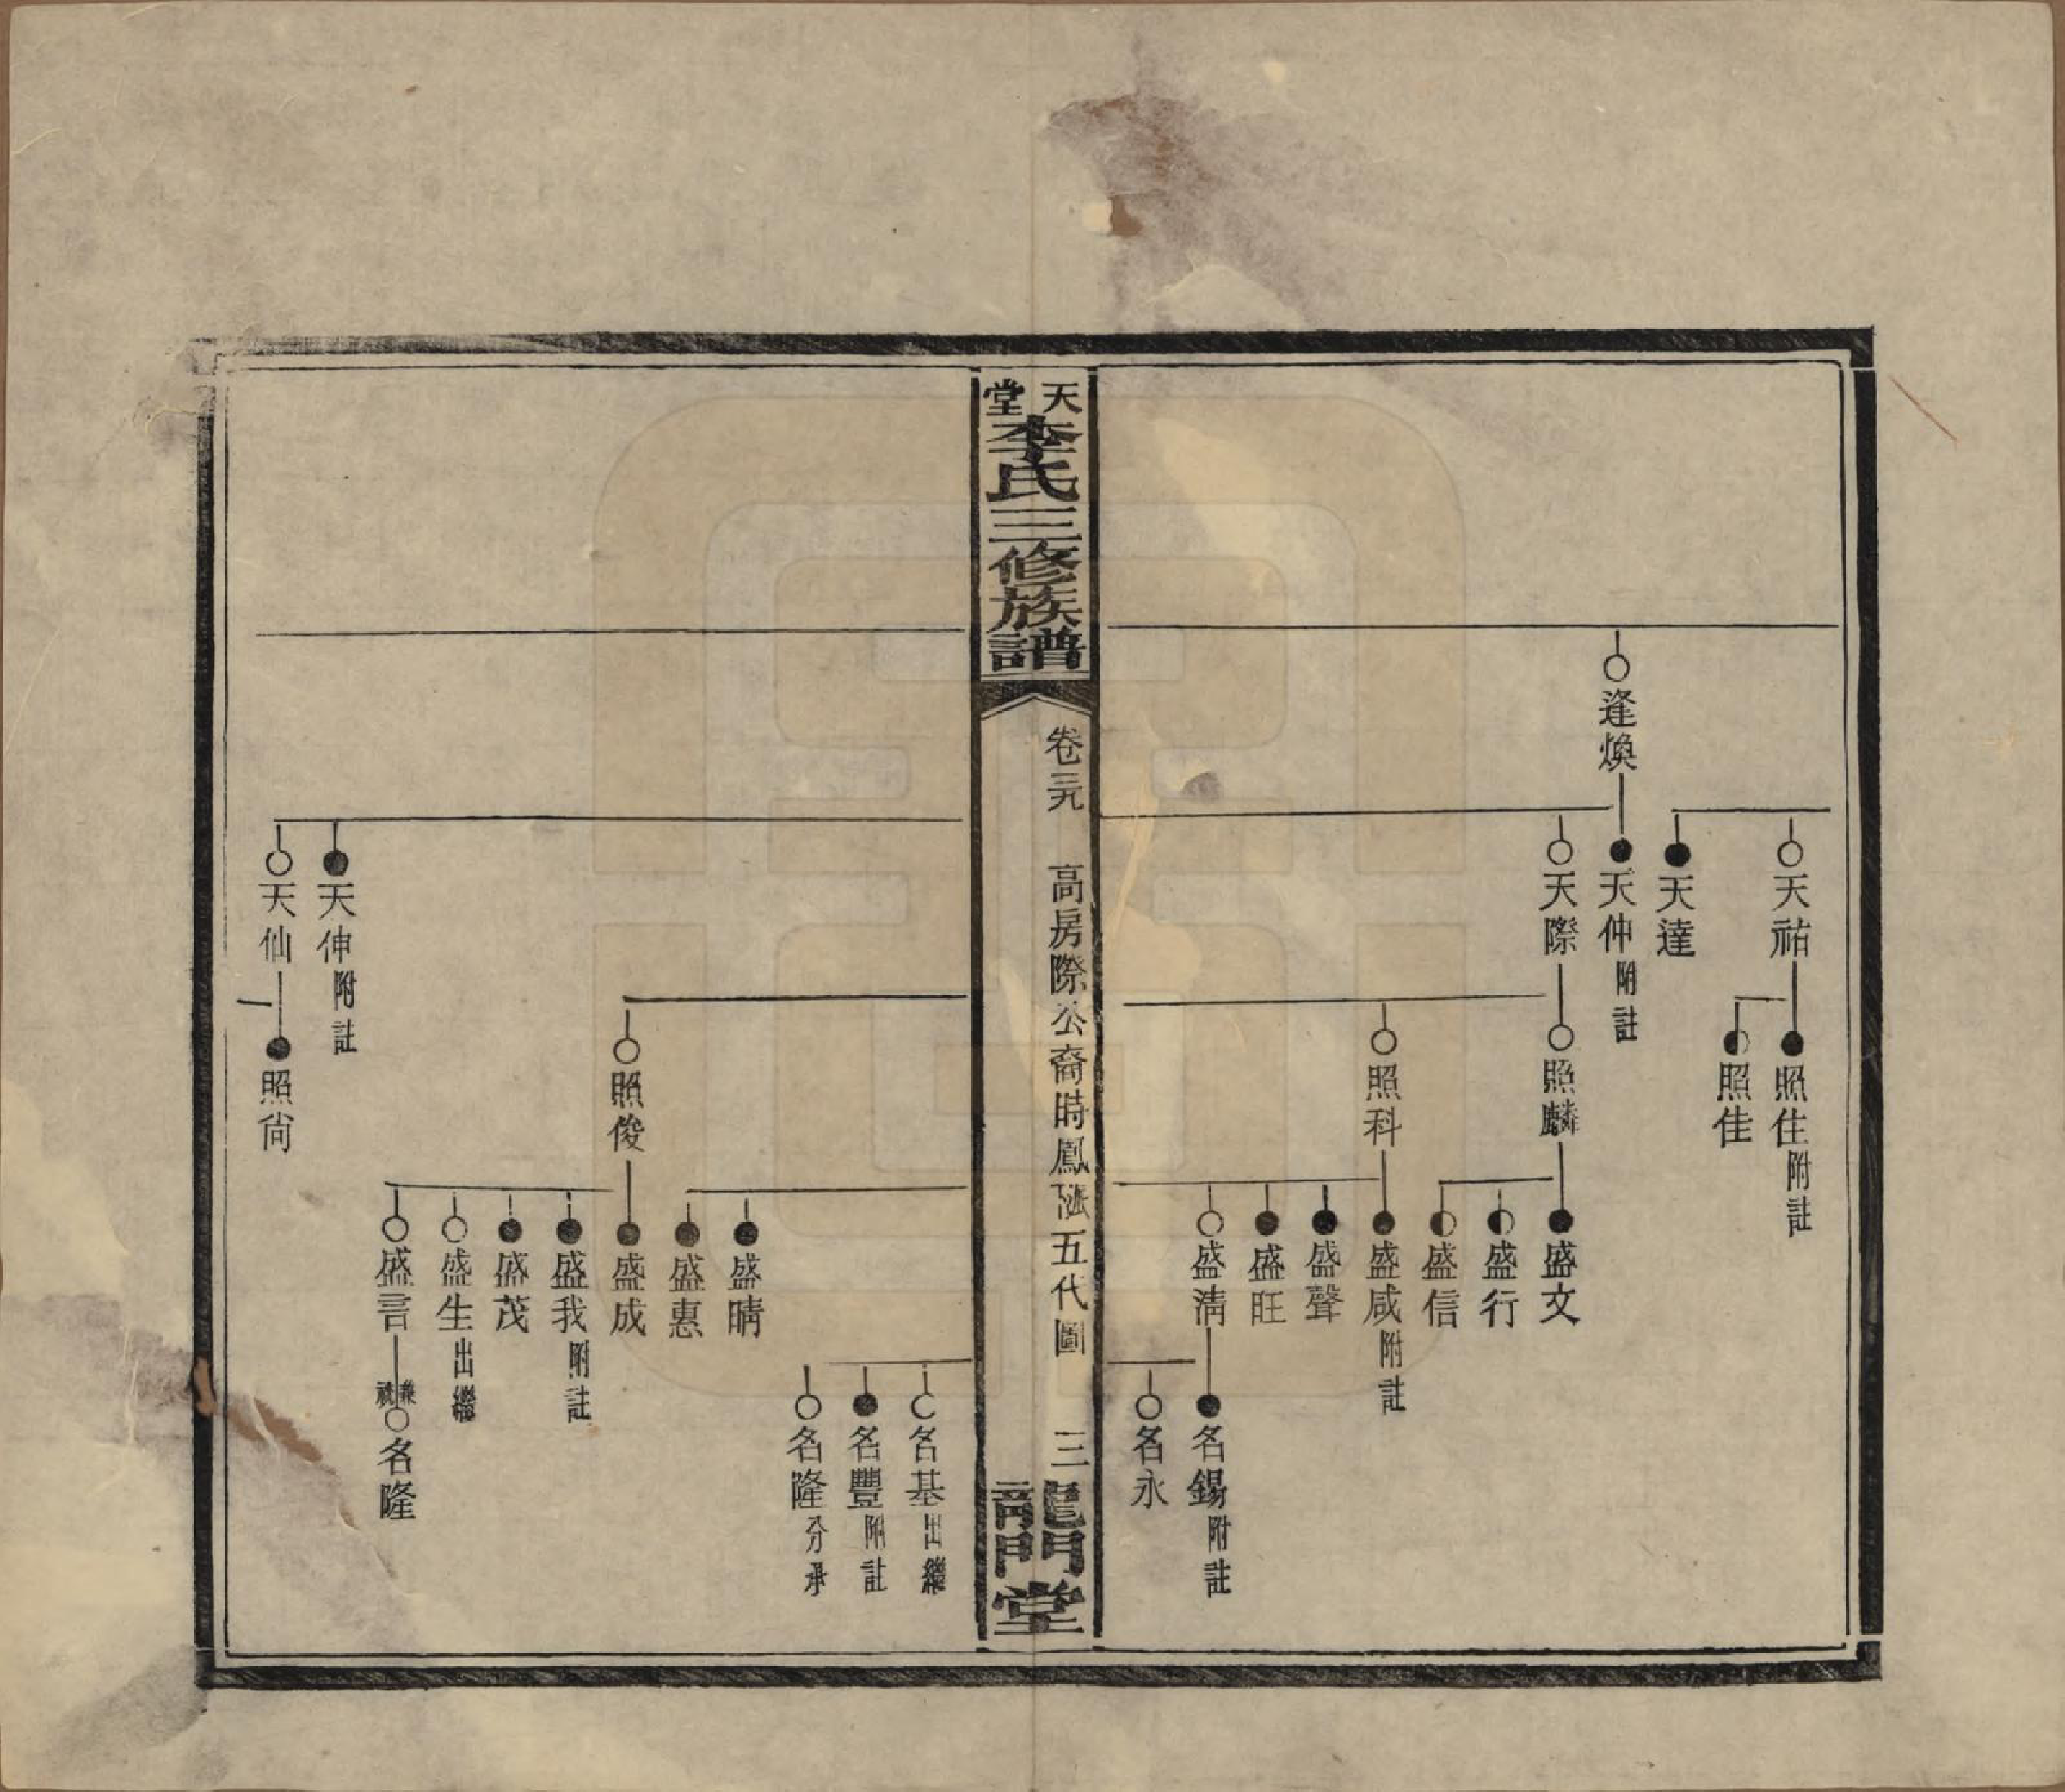 逢煥
天祐
照住附註
照佳
天達
天仲附註
天際
照麟
盛文
盛行
盛信
照科
盛咸附註
盛聲
盛旺
盛清
名錫附註
名永
天堂
李氏三修族譜
卷三九
高房際公裔時鳳 五代圖
三
龍門堂
名基出繼
名豐附註
名隆分承
盛晴
盛惠
照俊
盛成
盛我附註
盛茂
盛生出繼
盛言
兼祧
名隆
天伸附註
天仙
照尙